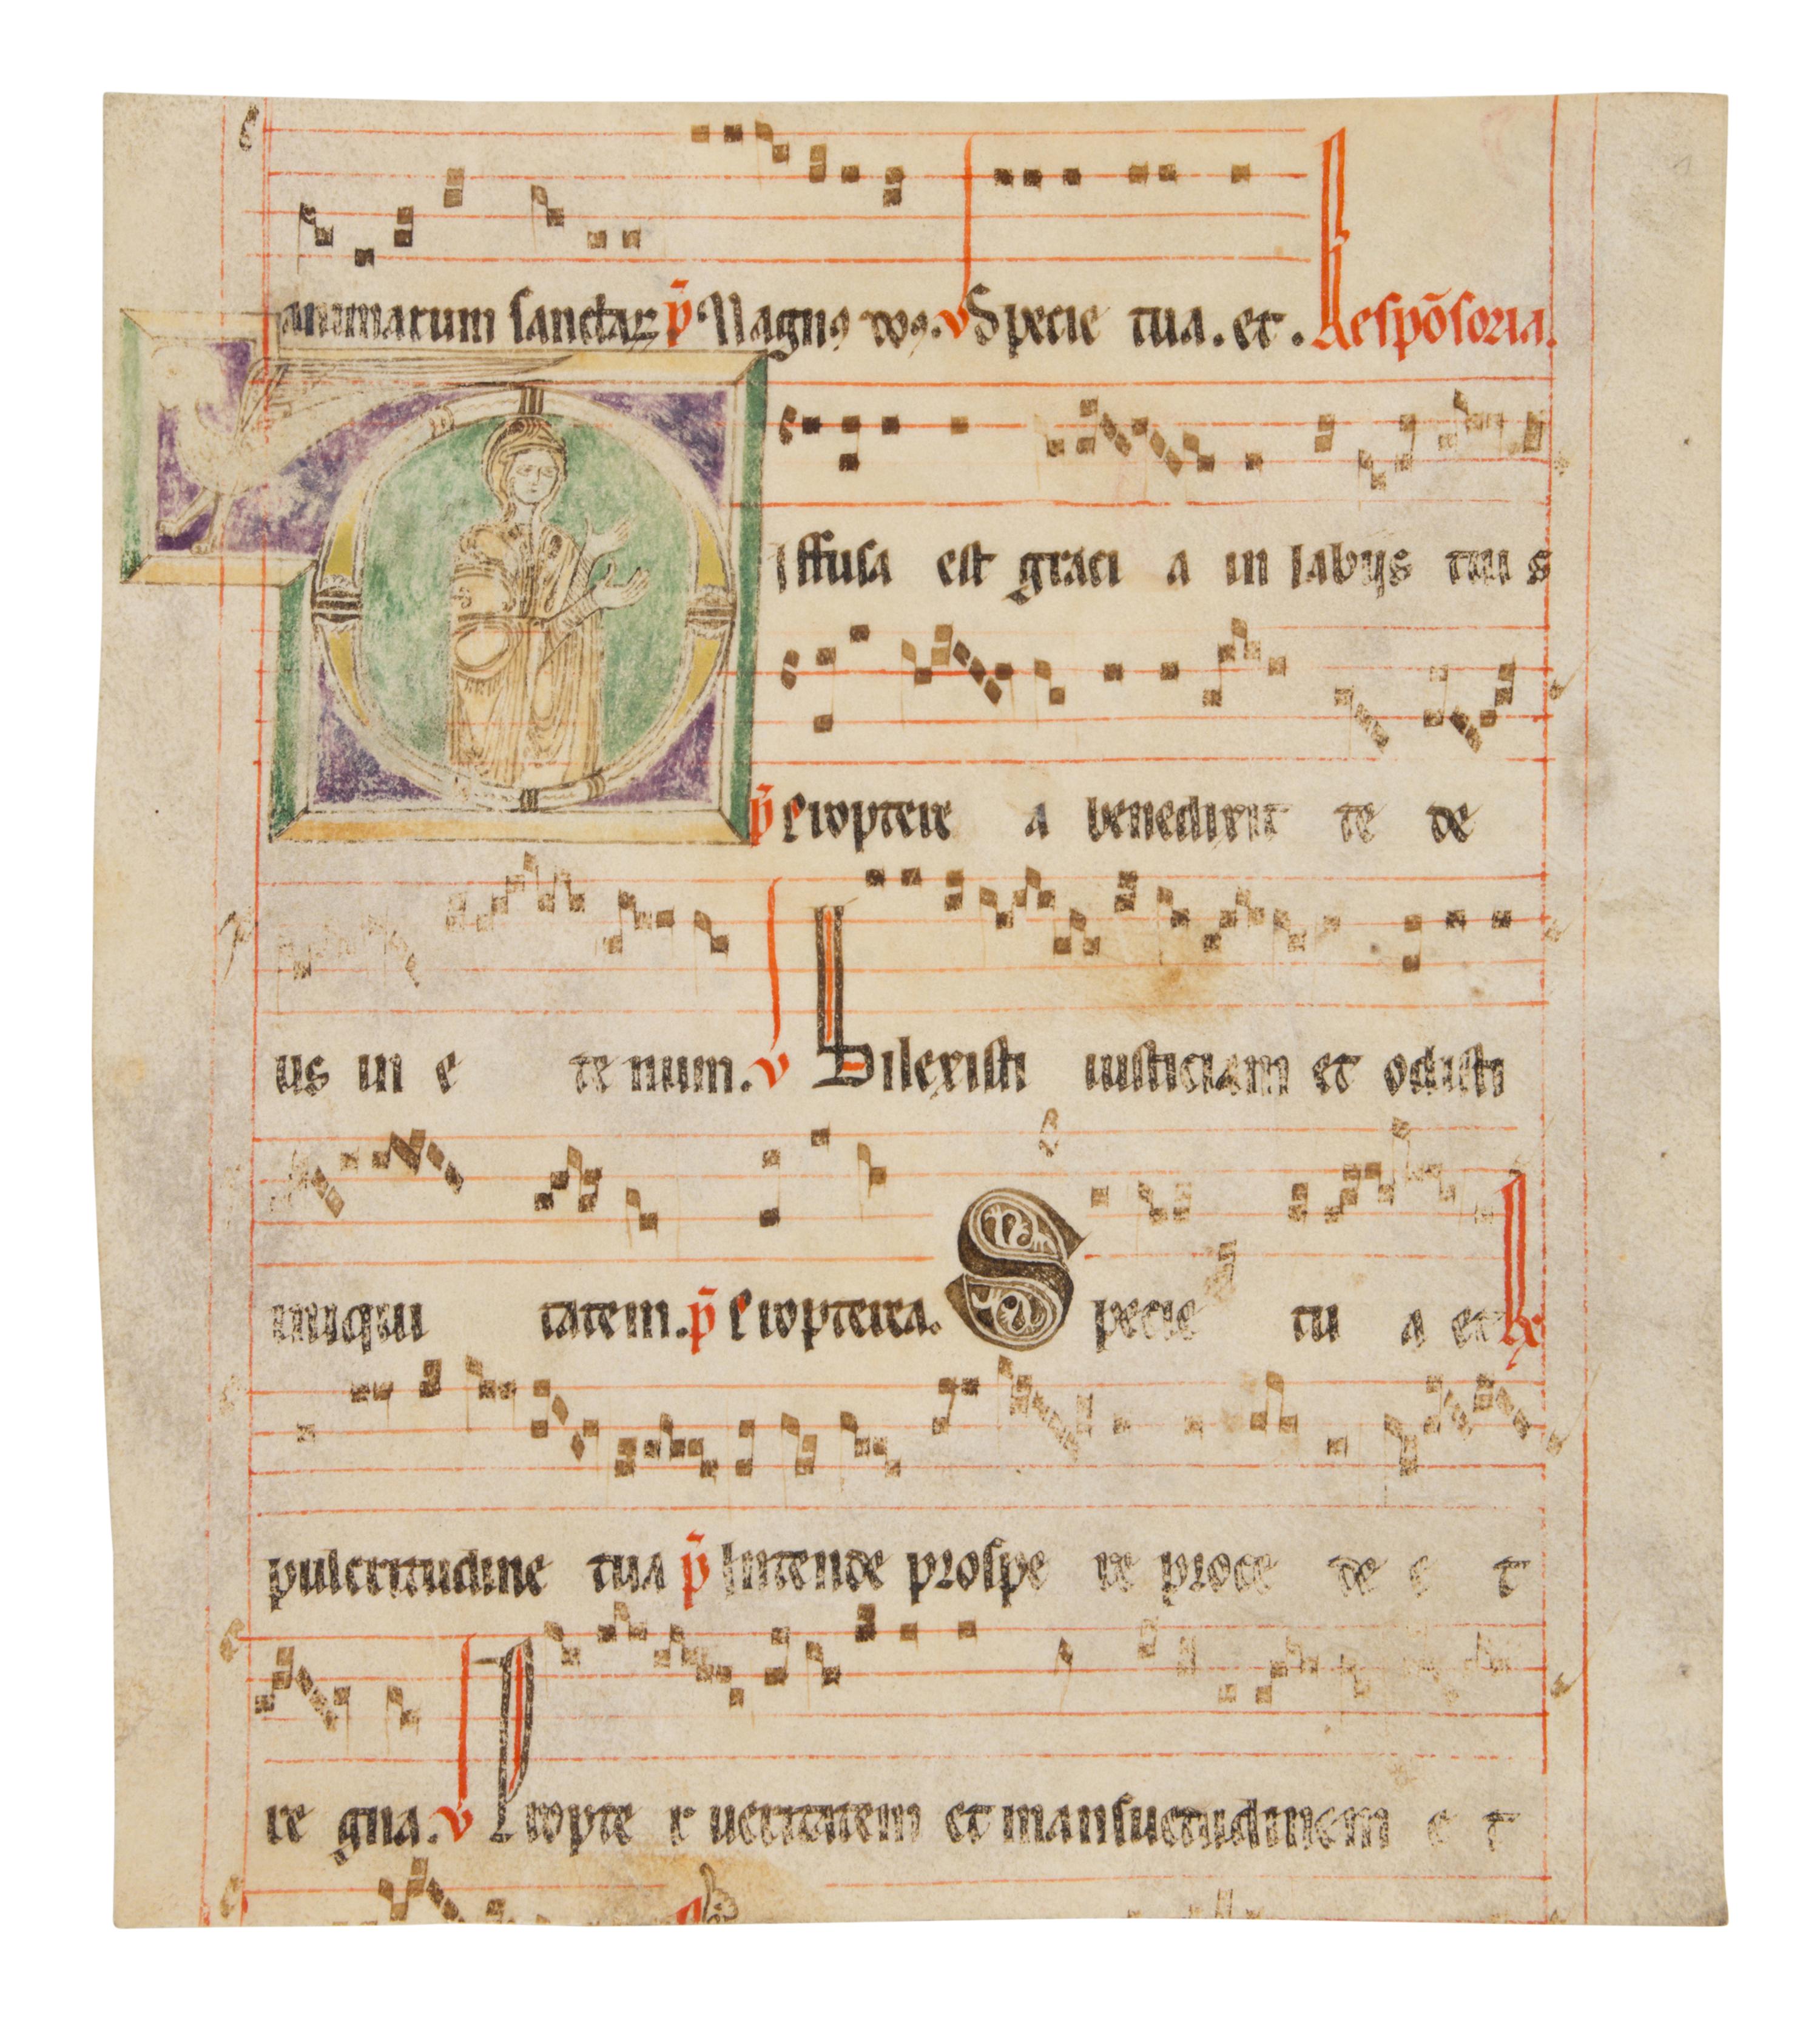 animarum sanctaꝝ p̄ Magnꝯ dnꝯ. v Specie tua. et. Respõsoria.
Diffusa est graci a in labijs tuis
p̄ Propterea benedixit te de
us in e te rnum. v Dilexisti iusticiam et odisti
iniqui tatem. p̄ Propterea. Specie tu a et R
pulcritudine tua p̄ Intende prospe re proce de e t
re gna. v Propte r ueritatem et mansuetudinem e t